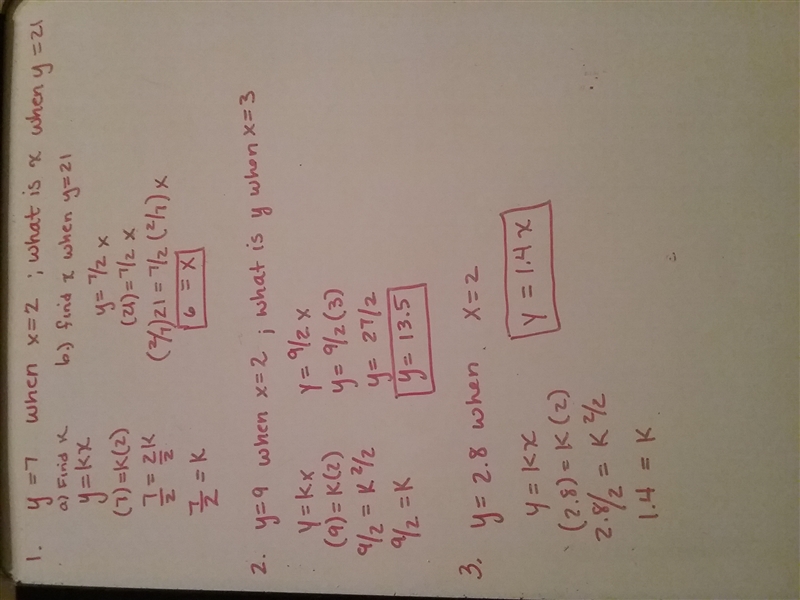 1. y=7 when x=2 ; what is x when y=21
a) Find K
b) find x when y=21
y=Kx
(7)=K(2)
7/2 = 2K/2
7/2 = K
y=7/2 x
(21)=7/2 x
(2/7)21=7/2(2/7)x
6 = x
2. y=9 when x=2 ; what is y when x=3
y=Kx
(9)=K(2)
9/2=K 2/2
9/2=K
y=9/2 x
y=9/2(3)
y= 27/2
y= 13.5
3. y=2.8 when x=2
y=Kx
(2.8)=K(2)
2.8/2 = K 2/2
1.4 = K
y=1.4x